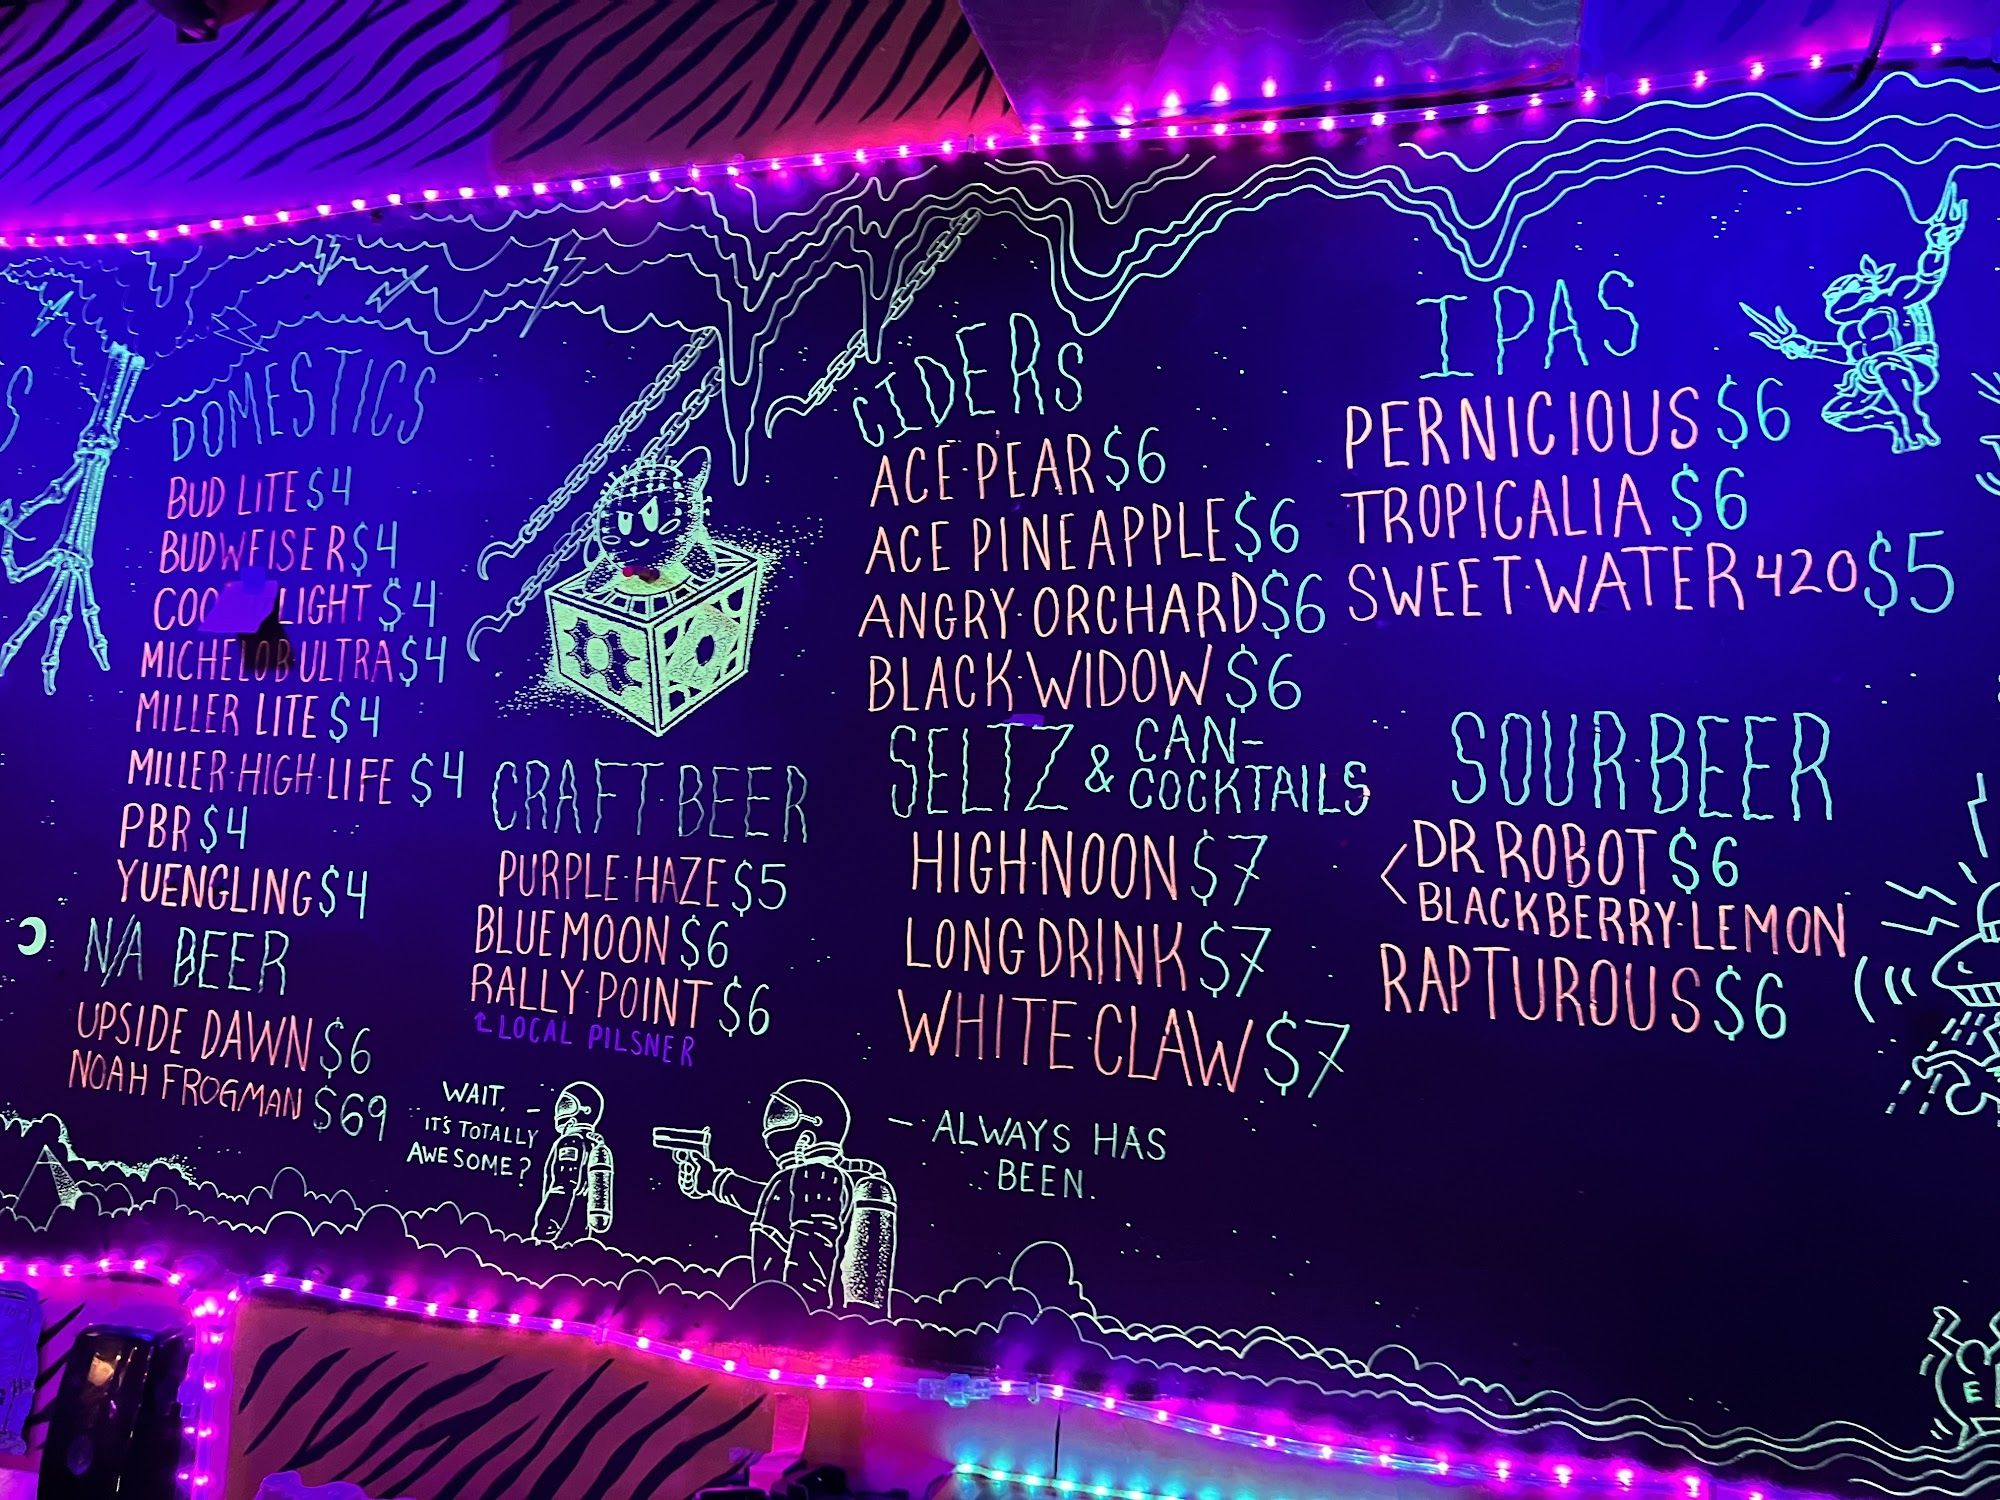 DOMESTICS
BUD LITE $4
BUDWEISER $4
COO LIGHT $4
MICHELOB·ULTRA $4
MILLER LITE $4
MILLER·HIGH·LIFE $4
PBR $4
YUENGLING $4
N/A BEER
UPSIDE DAWN $6
NOAH FROGMAN $69
CRAFT·BEER
PURPLE·HAZE $5
BLUE MOON $6
RALLY·POINT $6
LOCAL PILSNER
WAIT,
IT'S TOTALLY
AWESOME?
ALWAYS HAS
BEEN.
CIDERS
ACE·PEAR $6
ACE PINEAPPLE $6
ANGRY·ORCHARD $6
BLACK·WIDOW $6
SELTZ & CAN-
COCKTAILS
HIGH·NOON $7
LONG DRINK $7
WHITE·CLAW $7
IPAS
PERNICIOUS $6
TROPICALIA $6
SWEET·WATER 420 $5
SOUR·BEER
DR ROBOT $6
BLACKBERRY·LEMON
RAPTUROUS $6